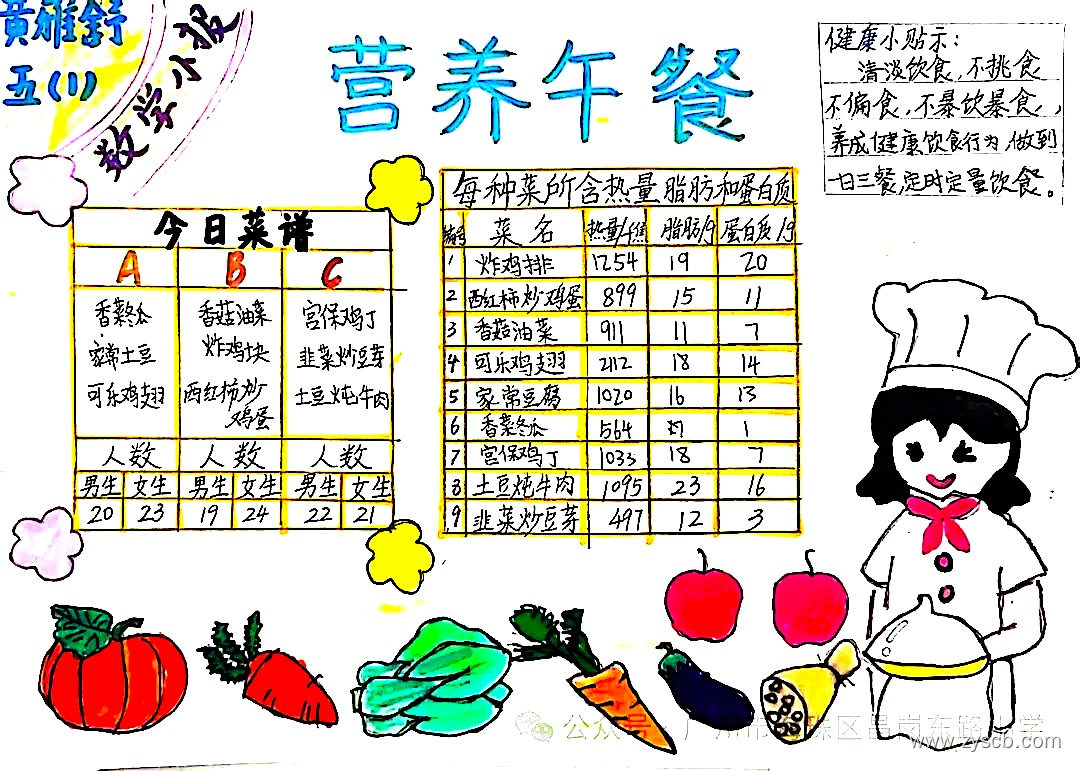 黄雅舒
五(1)
数学小报
营养午餐
健康小贴示:
清淡饮食,不挑食
不偏食,不暴饮暴食,
养成健康饮食行为,做到
一日三餐定时定量饮食。
今日菜谱
A B C
香菜冬瓜 香菇油菜 宫保鸡丁
家常土豆 炸鸡块 韭菜炒豆芽
可乐鸡翅 西红柿炒 土豆炖牛肉
鸡蛋
人数 人数 人数
男生 女生 男生 女生 男生 女生
20 23 19 24 22 21
每种菜所含热量脂肪和蛋白质
编号 菜名 热量/千焦 脂肪/g 蛋白质/g
1 炸鸡排 1254 19 20
2 西红柿炒鸡蛋 899 15 11
3 香菇油菜 911 11 7
4 可乐鸡翅 2112 18 14
5 家常豆腐 1020 16 13
6 香菜冬瓜 564 1
7 宫保鸡丁 1033 18 7
8 土豆炖牛肉 1095 23 16
9 韭菜炒豆芽 497 12 3
公众号·广州市海珠区昌岗东路小学
www.zyscb.com